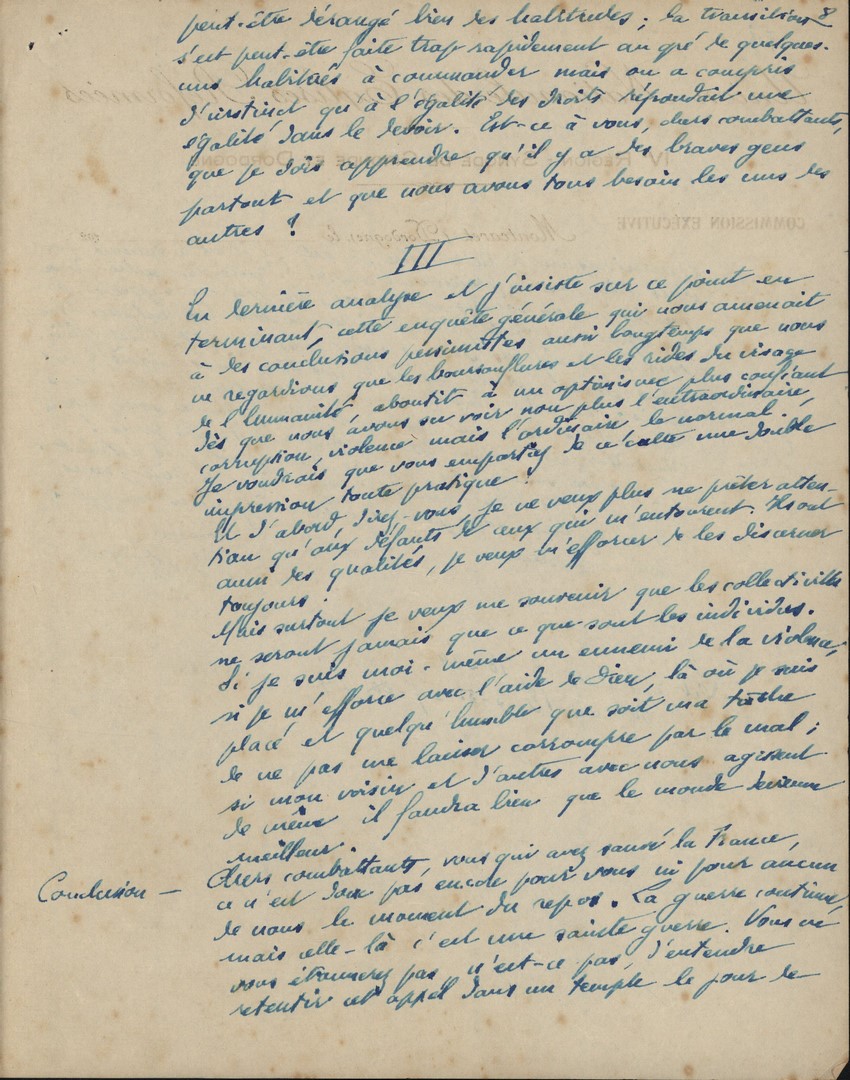 8
peut-être dérangé bien des habitudes ; la transition
s'est peut-être faite trop rapidement au gré de quelques-
uns habitués à commander mais on a compris
d'instinct qu'à l'égalité des droits répondait une
égalité dans le devoir. Est-ce à vous, chers combattants,
que je dois apprendre qu'il y a des braves gens
partout et que nous avons tous besoin les uns des
autres ?
III
En dernière analyse et j'insiste sur ce point en
terminant, cette enquête générale qui nous amenait
à des conclusions pessimistes aussi longtemps que nous
ne regardions que les boursouflures et les rides du visage
de l'humanité, aboutit à un optimisme plus confiant
dès que nous avons su voir non plus l'extraordinaire,
corruption, violence mais l'ordinaire, le normal.
Je voudrais que vous emportiez de ce culte une double
impression toute pratique :
Et d'abord, direz-vous, je ne veux plus ne prêter atten-
tion qu'aux défauts de ceux qui m'entourent. Ils ont
aussi des qualités, je veux m'efforcer de les discerner
toujours.
Mais surtout je veux me souvenir que les collectivités
ne seront jamais que ce que sont les individus.
Si je suis moi-même un ennemi de la violence,
si je m'efforce avec l'aide de Dieu, là où je suis
placé et quelqu'humble que soit ma tâche
de ne pas me laisser corrompre par le mal ;
si mon voisin et d'autres avec nous agissent
de même il faudra bien que le monde devienne
meilleur.
Conclusion — Chers combattants, vous qui avez sauvé la France,
ce n'est donc pas encore pour vous ni pour aucun
de nous le moment du repos. La guerre continue,
mais celle-là c'est une sainte guerre. Vous ne
vous étonnerez pas, n'est-ce pas, d'entendre
retentir cet appel dans un temple le jour de
IV RÉGION SYNODALE
DORDOGNE
COMMISSION EXÉCUTIVE